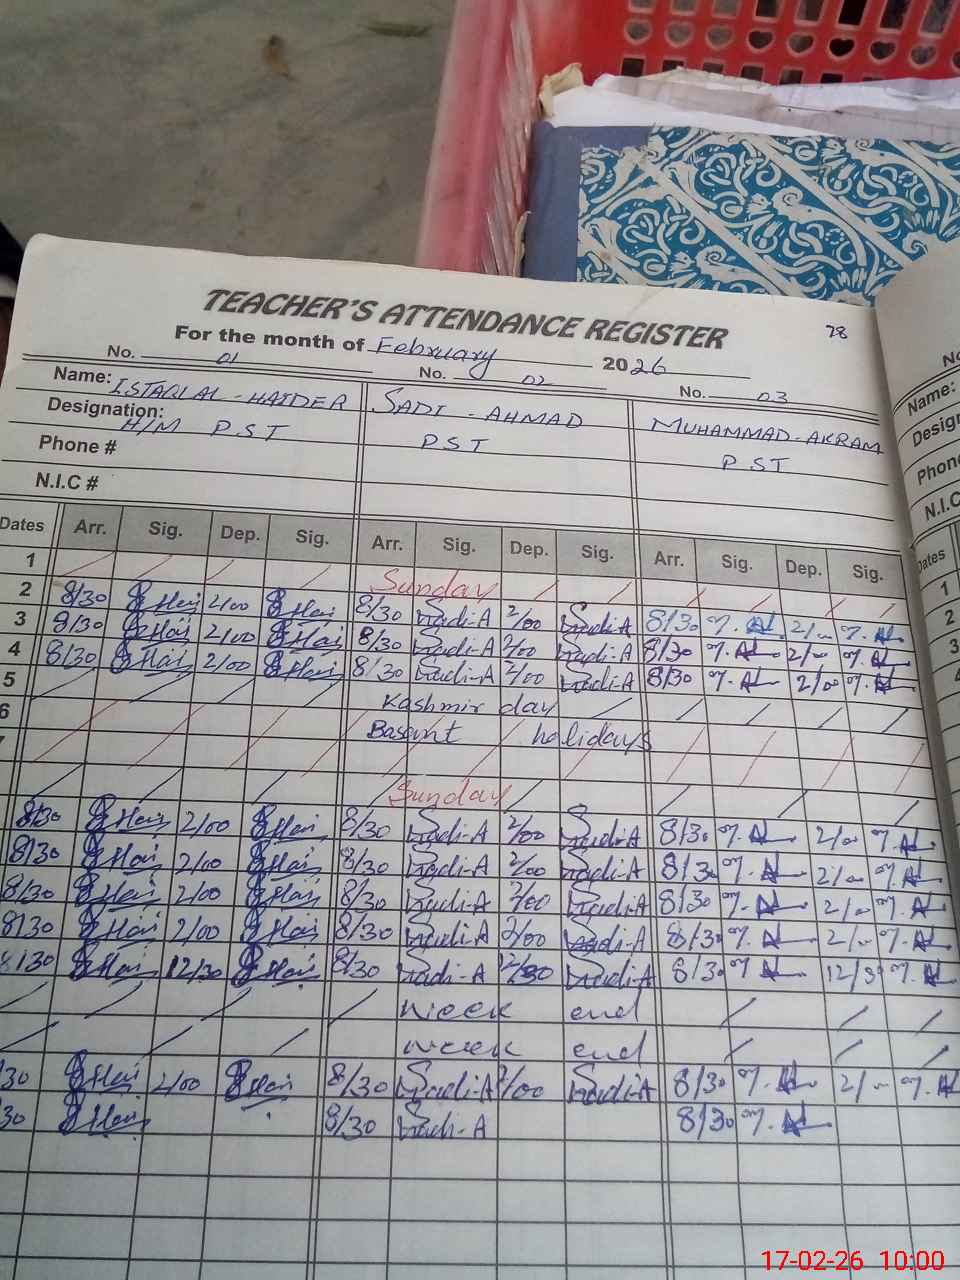 TEACHER'S ATTENDANCE REGISTER 28
For the month of February 2026
No. 01 No. 02 No. 03
Name: HAIDER SADI - AHMAD MUHAMMAD - AKRAM
Designation: H/M P.S.T P S T P ST
Phone #
N.I.C #
Dates Arr. Sig. Dep. Sig. Arr. Sig. Dep. Sig. Arr. Sig. Dep. Sig.
1 Sunday
2 8/30 2/00 8/30 Sadi-A 2/00 Sadi-A 8/30 2/00
3 8/30 2/00 8/30 Sadi-A 2/00 Sadi-A 8/30 2/00
4 8/30 2/00 8/30 Sadi-A 2/00 Sadi-A 8/30 2/00
5 Kashmir day
6 Basant holidays
7
Sunday
8/30 2/00 8/30 Sadi-A 2/00 Sadi-A 8/30 2/00
8/30 2/00 8/30 Sadi-A 2/00 Sadi-A 8/30 2/00
8/30 2/00 8/30 Sadi-A 2/00 Sadi-A 8/30 2/00
8/30 2/00 8/30 Sadi-A 2/00 Sadi-A 8/30 2/00
8/30 12/30 8/30 Sadi-A 12/30 Sadi-A 8/30 12/30
week end
week end
30 2/00 8/30 Sadi-A 2/00 Sadi-A 8/30 2/00
30 8/30 Sadi-A 8/30
No
Name:
Desig
Phon
N.I.C
Dates
1
2
3
4
17-02-26 10:00